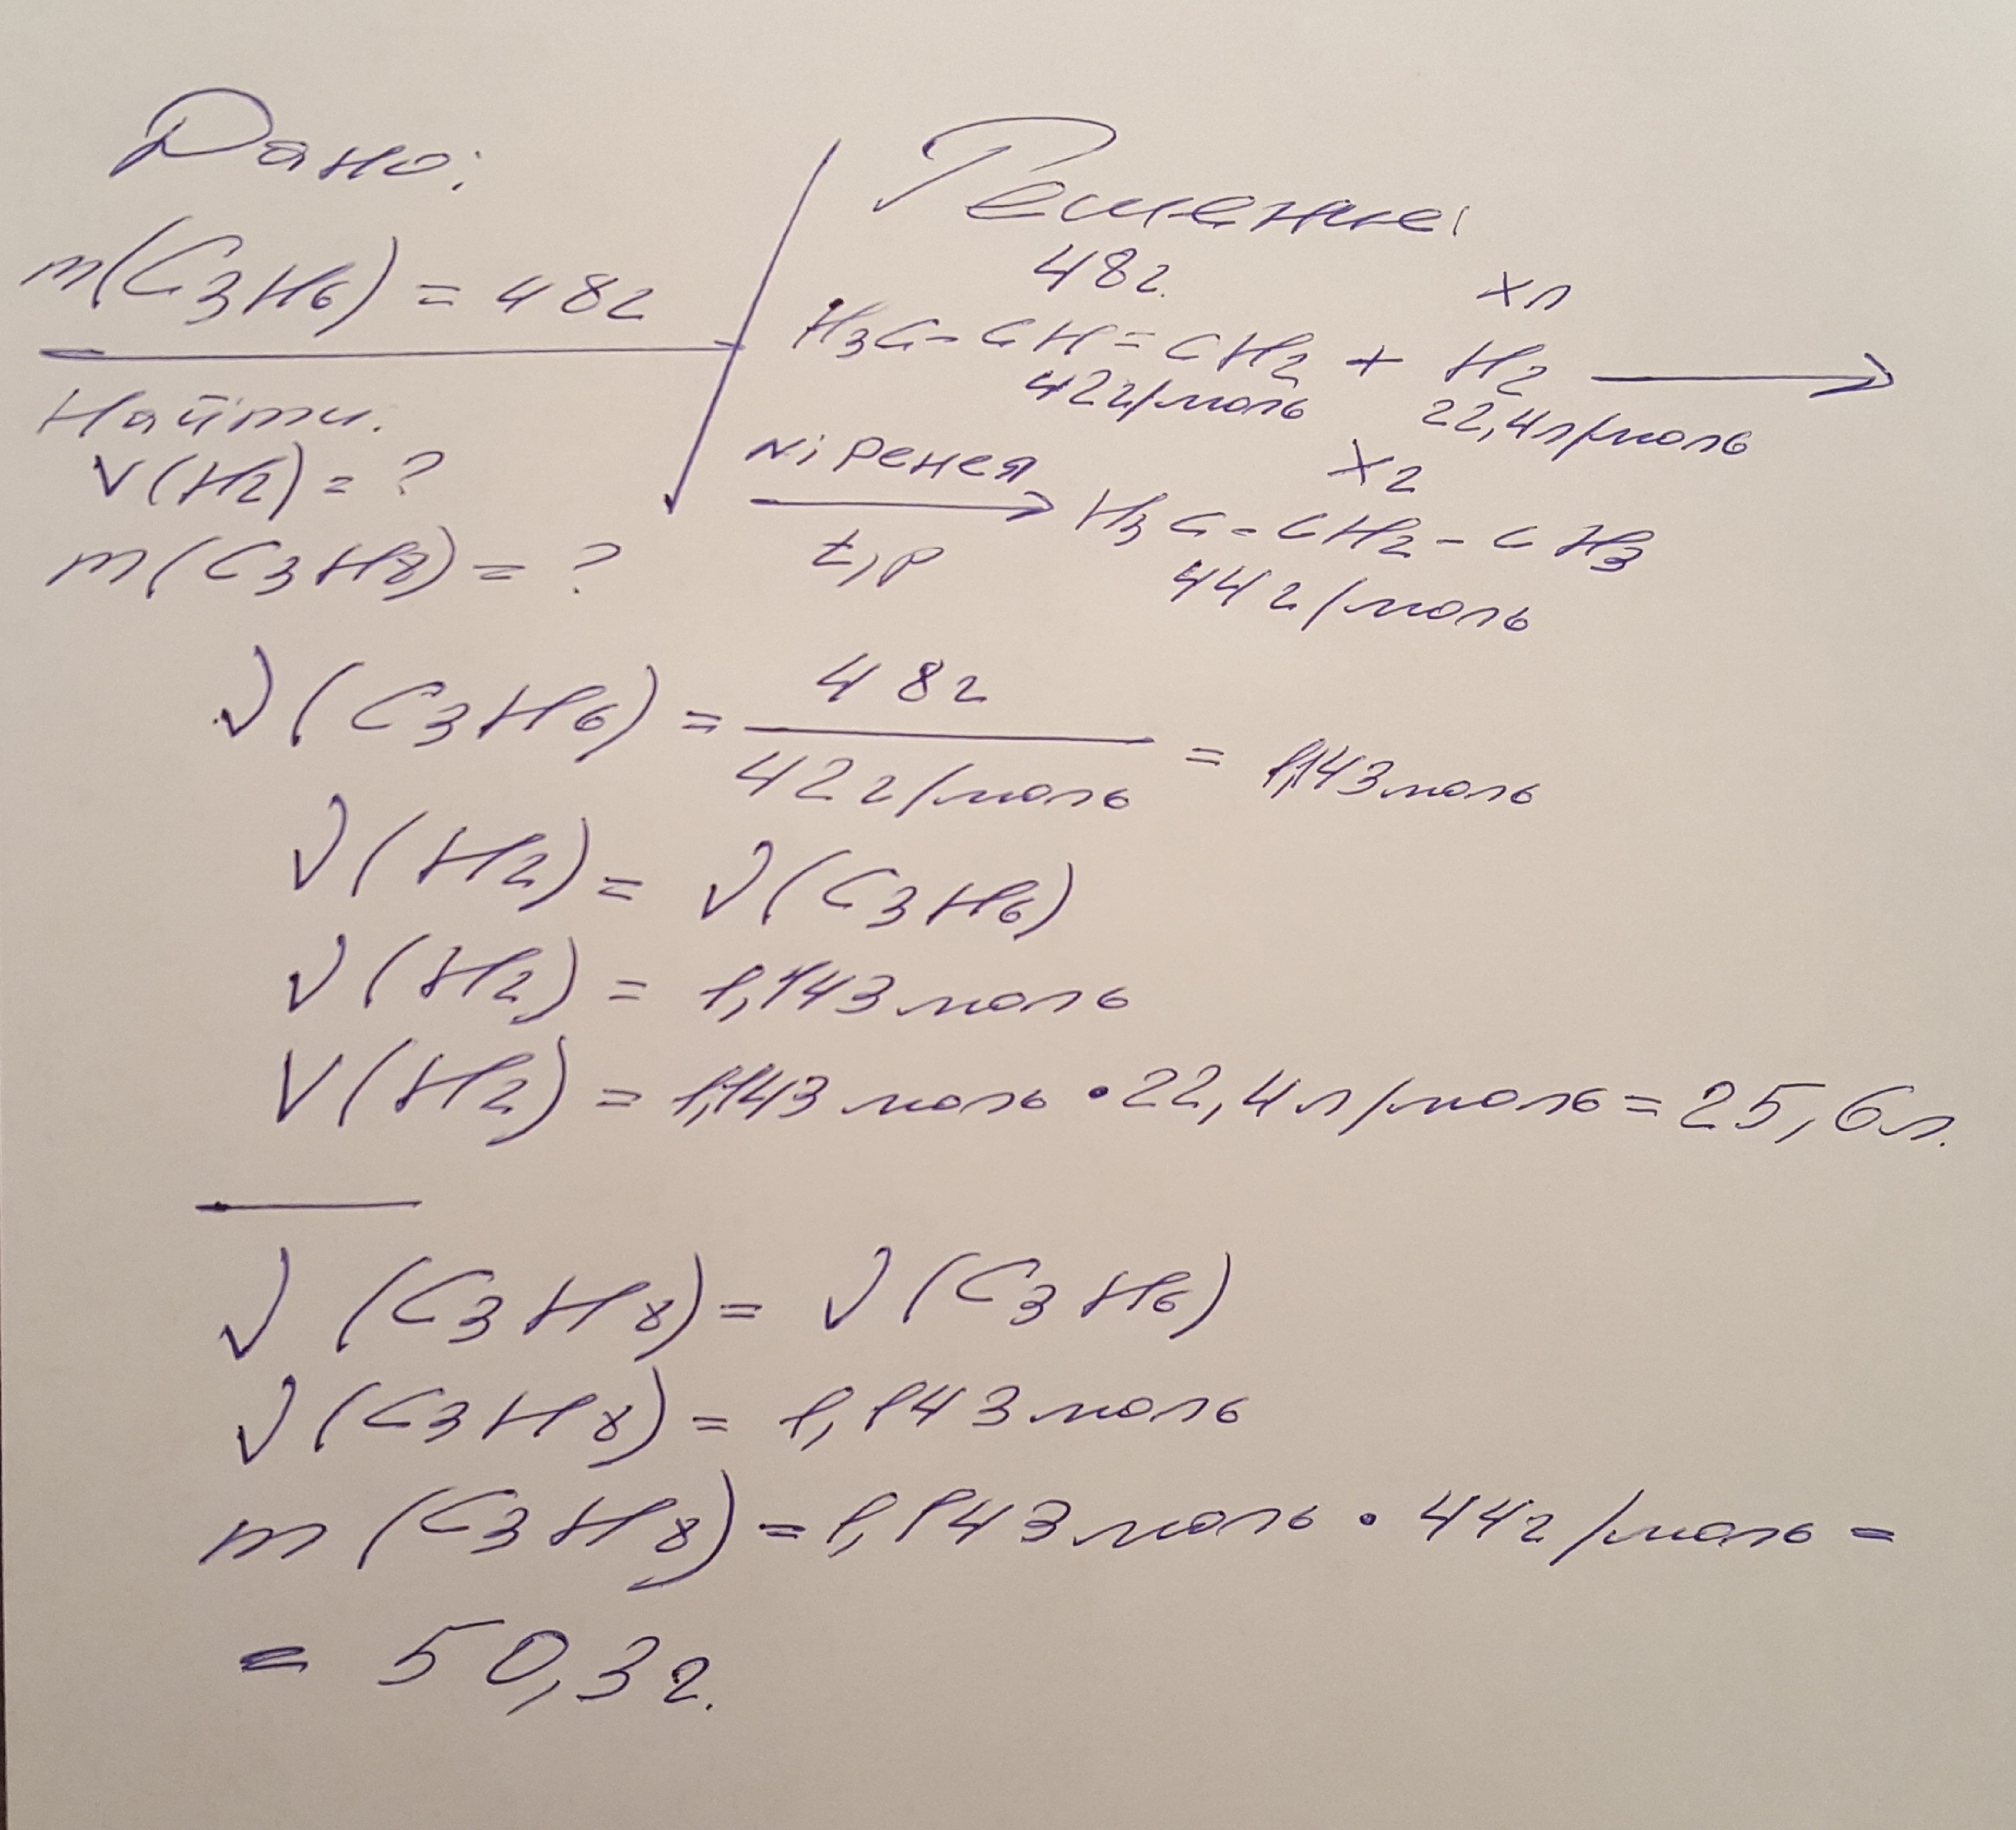 Дано:
m(C₃H₆) = 48г
Найти:
V(H₂) = ?
m(C₃H₈) = ?
Решение:
48г. xл
H₃C-CH=CH₂ + H₂ →
42г/моль 22,4л/моль
Ni Ренея xг
→ H₃C-CH₂-CH₃
t,p 44г/моль
ν(C₃H₆) = 48г / 42г/моль = 1,143моль
ν(H₂) = ν(C₃H₆)
ν(H₂) = 1,143моль
V(H₂) = 1,143 моль • 22,4л/моль = 25,6л.
ν(C₃H₈) = ν(C₃H₆)
ν(C₃H₈) = 1,143моль
m(C₃H₈) = 1,143моль • 44г/моль =
= 50,3г.